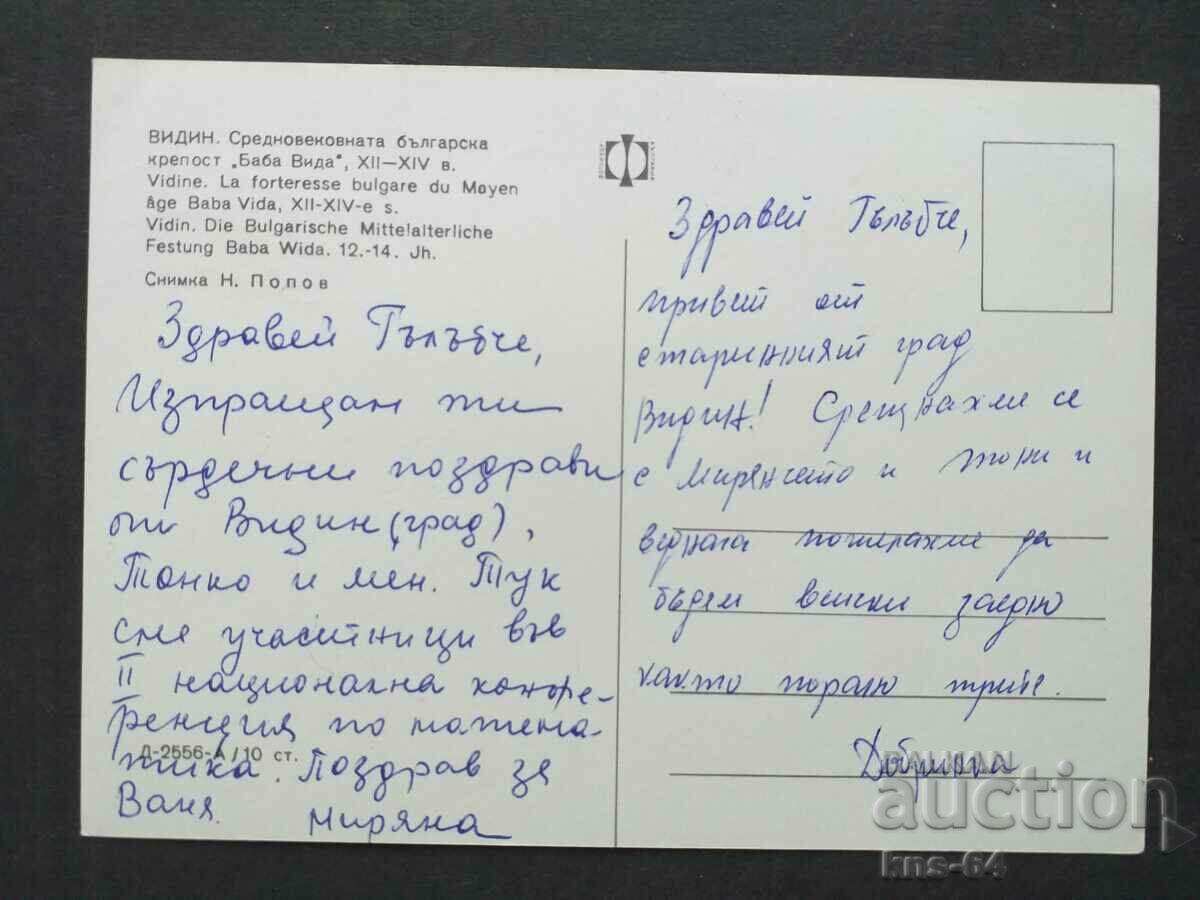 ВИДИН. Средновековната българска
крепост „Баба Вида", XII—XIV в.
Vidine. La forteresse bulgare du Moyen
âge Baba Vida, XII-XIV-e s.
Vidin. Die Bulgarische Mittelalterliche
Festung Baba Wida. 12.-14. Jh.
Снимка Н. Попов
Здравей Гълъбче,
Изпращам ти
сърдечни поздрави
от Видин (град),
Тонко и мен. Тук
сме участници във
II национална конфе-
ренция по матема-
тика. Поздрав за
Ваня. Миряна
Д-2556-А/10 ст.
Здравей Гълъбче,
привет от
старинният град
Видин! Срещнахме се
с Мирянчето и Тони и
веднага пожелахме да
бъдем всички заедно
както порано трите.
BALKAN
auction
kns-64